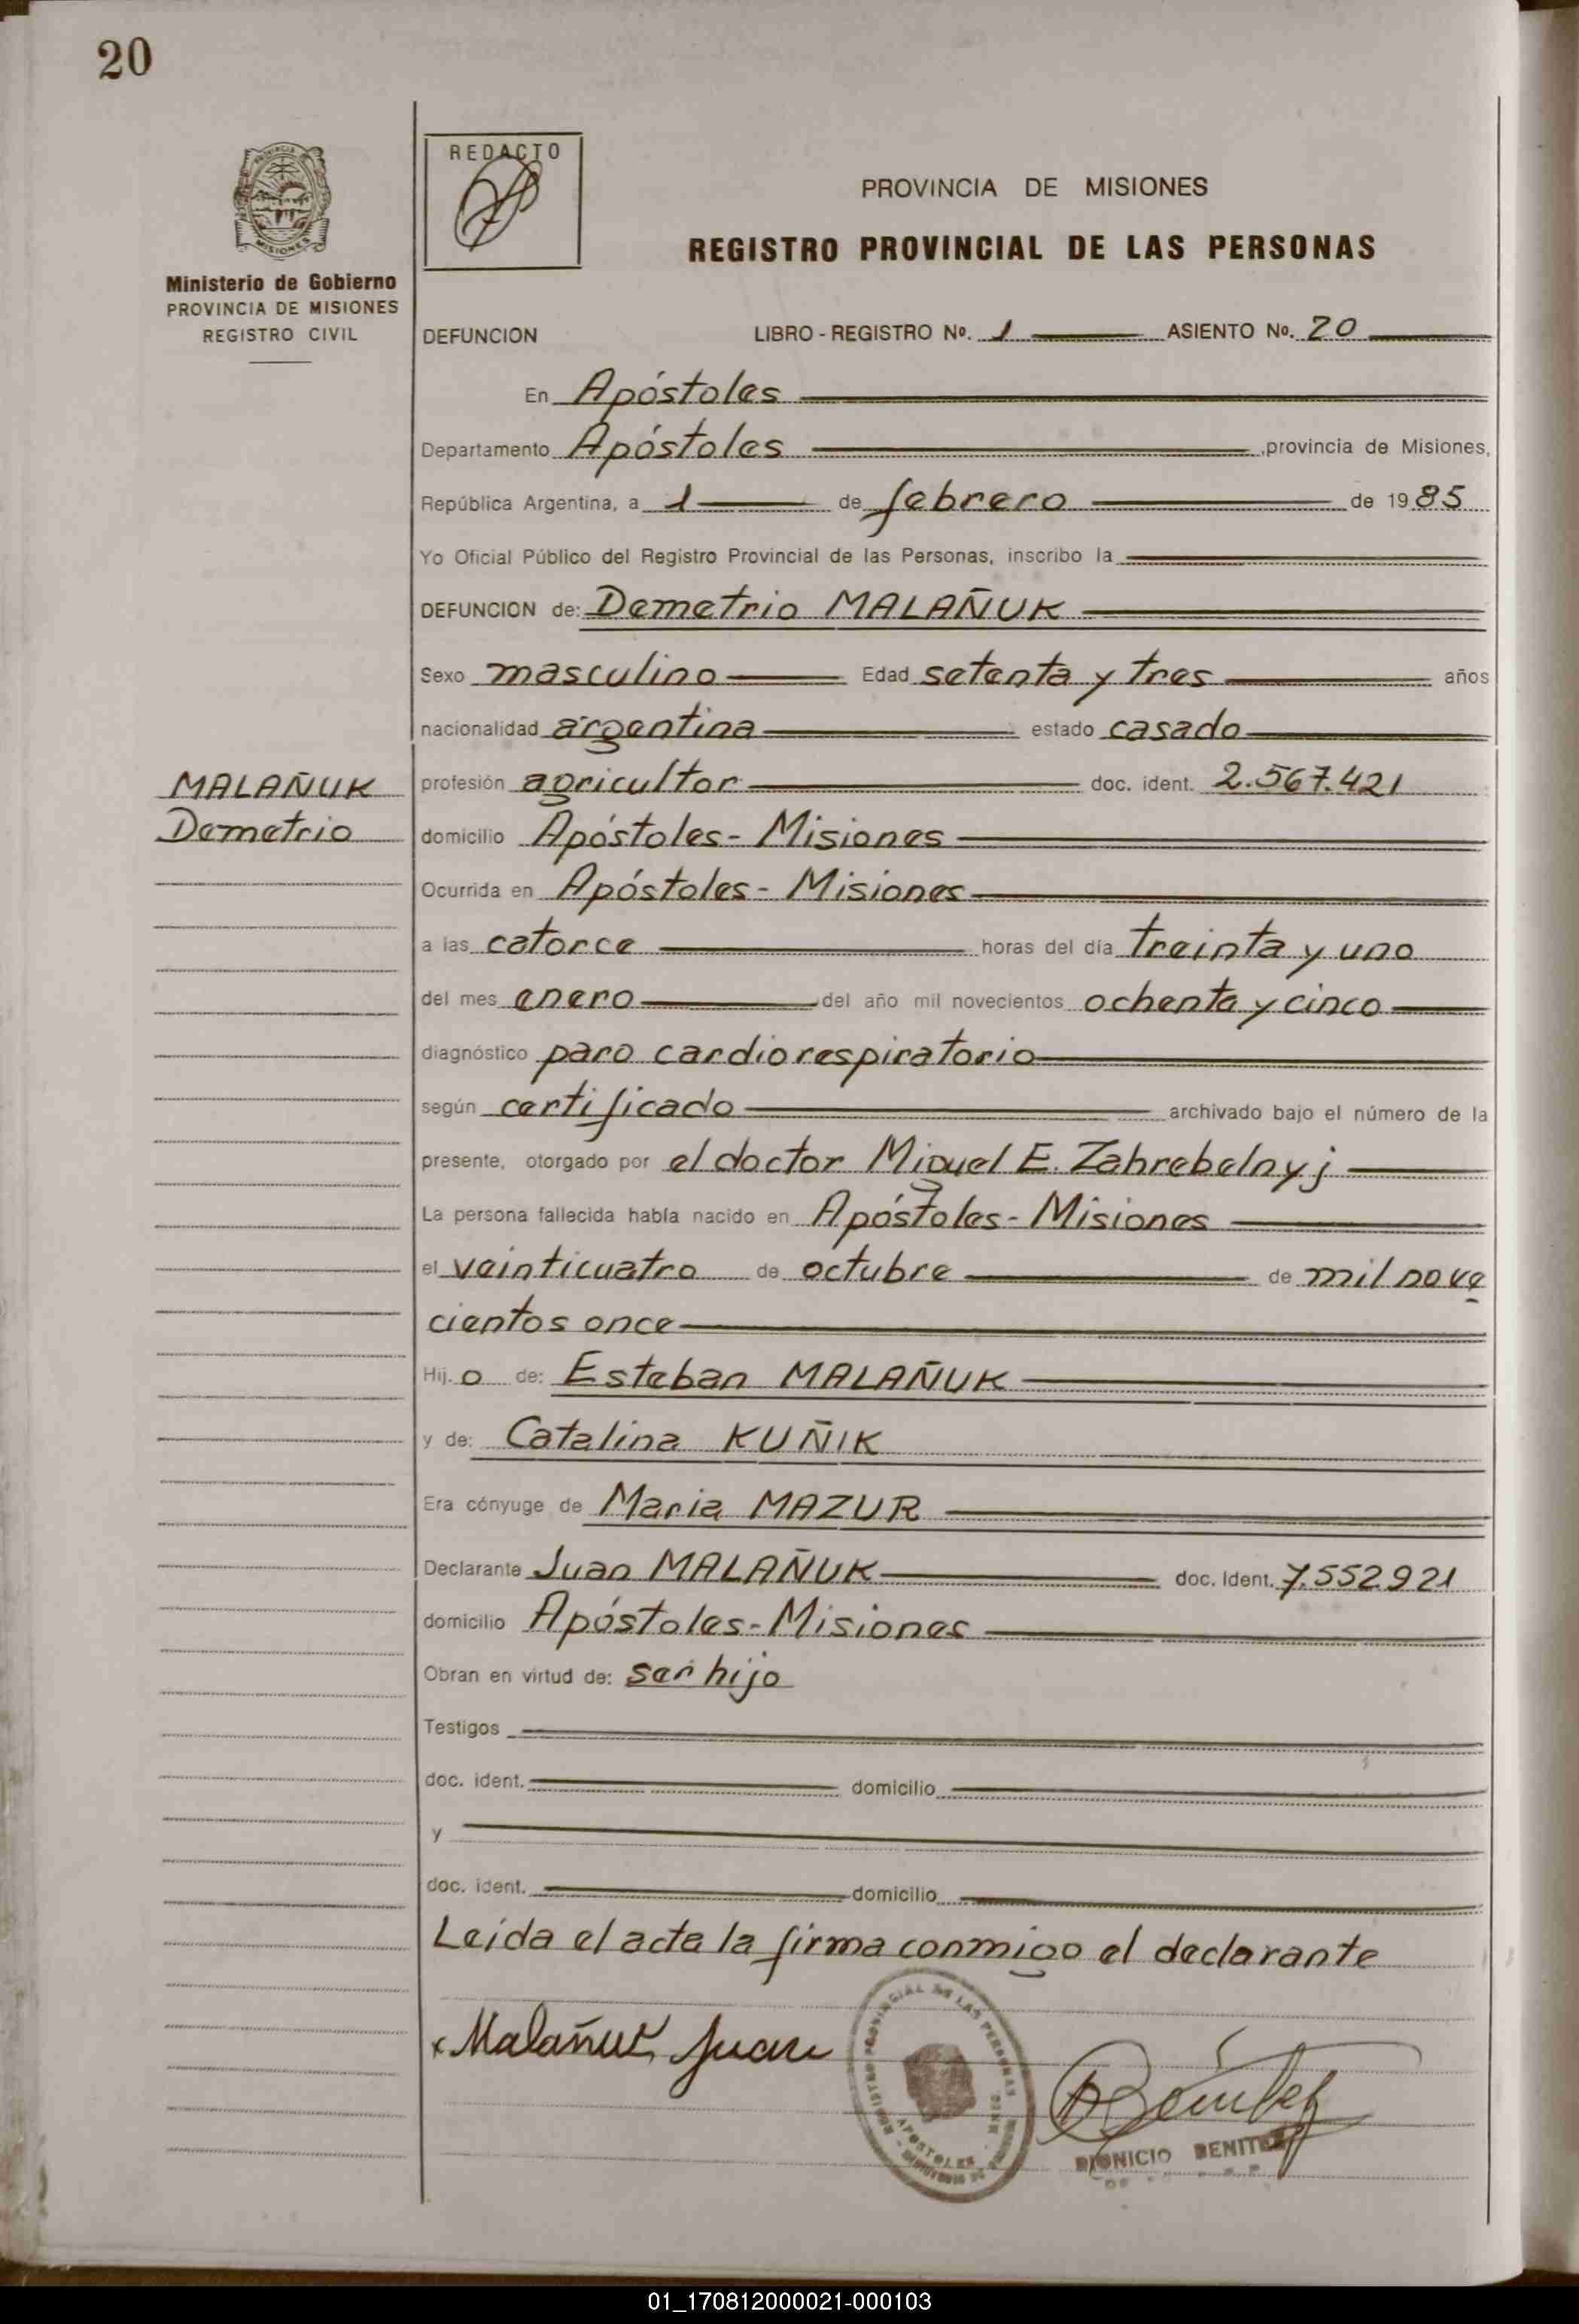 20
REDACTO
PROVINCIA DE MISIONES
REGISTRO PROVINCIAL DE LAS PERSONAS
Ministerio de Gobierno
PROVINCIA DE MISIONES
REGISTRO CIVIL
DEFUNCION LIBRO - REGISTRO Nº. 1 ASIENTO No. 20
En Apóstoles
Departamento Apóstoles , provincia de Misiones,
República Argentina, a 1 de febrero de 1985
Yo Oficial Público del Registro Provincial de las Personas, inscribo la
DEFUNCION de: Demetrio MALAÑUK
Sexo masculino Edad setenta y tres años
nacionalidad argentina estado casado
MALAÑUK
Demetrio
profesión agricultor doc. ident. 2.567.421
domicilio Apóstoles - Misiones
Ocurrida en Apóstoles - Misiones
a las catorce horas del día treinta y uno
del mes enero del año mil novecientos ochenta y cinco
diagnóstico paro cardiorespiratorio
según certificado archivado bajo el número de la
presente, otorgado por el doctor Miguel E. Zabrebelnyj
La persona fallecida había nacido en Apóstoles - Misiones
el veinticuatro de octubre de mil nove
cientos once
Hij.o de: Esteban MALAÑUK
y de: Catalina KUÑIK
Era cónyuge de Maria MAZUR
Declarante Juan MALAÑUK doc. Ident. 7.552.921
domicilio Apóstoles - Misiones
Obran en virtud de: ser hijo
Testigos
doc. ident. domicilio
y
doc. ident. domicilio
Leida el acta la firma conmigo el declarante
Malañuk Juan
APOSTOLES
DIONICIO BENITEZ
01_170812000021-000103